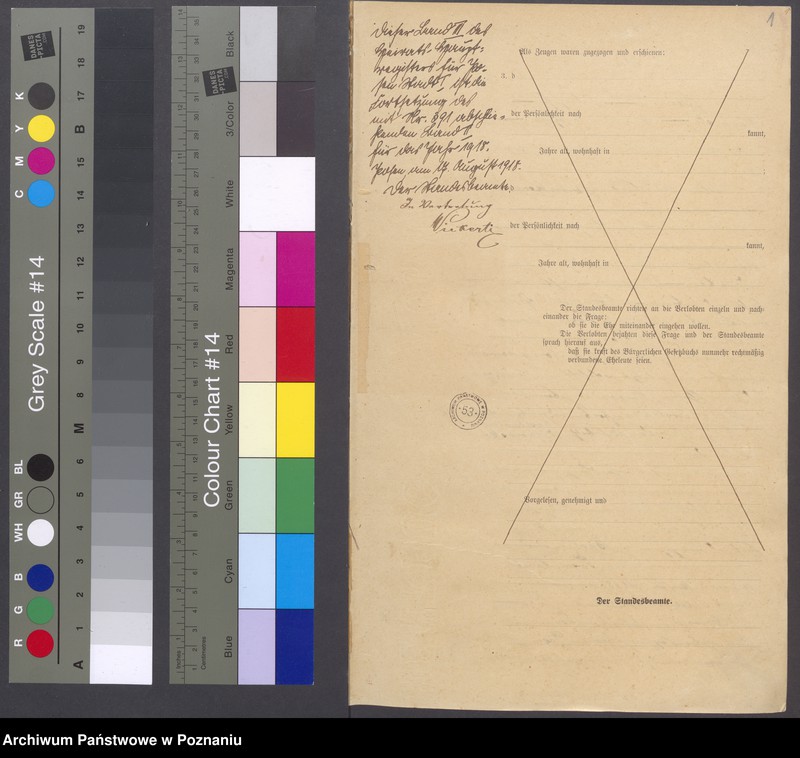 DANES
-PICTA
.com
Grey Scale #14
A 1 2 3 4 5 6 M 8 9 10 11 12 13 14 15 B 17 18 19
R G B WH GR BL C M Y K
DANES
-PICTA
.com
Colour Chart #14
Blue Cyan Green Yellow Red Magenta White 3/Color Black
Inches
Centimetres
1
Dieser Band II des
Heirats-Haupt-
registers für Po-
sen Stadt I ist die
Fortsetzung des
mit Nr. 891 abschlie-
ßenden Band I
für das Jahr 1918.
Posen am 17. August 1918.
Der Standesbeamte.
In Vertretung
Als Zeugen waren zugezogen und erschienen:
der Persönlichkeit nach
kannt,
Jahre alt, wohnhaft in
der Persönlichkeit nach
kannt,
Jahre alt, wohnhaft in
Der Standesbeamte richtete an die Verlobten einzeln und nach-
einander die Frage:
ob sie die Ehe miteinander eingehen wollen.
Die Verlobten bejahten diese Frage und der Standesbeamte
sprach hierauf aus,
daß sie kraft des Bürgerlichen Gesetzbuchs nunmehr rechtmäßig
verbundene Eheleute seien.
53
Vorgelesen, genehmigt und
Der Standesbeamte.
Archiwum Państwowe w Poznaniu